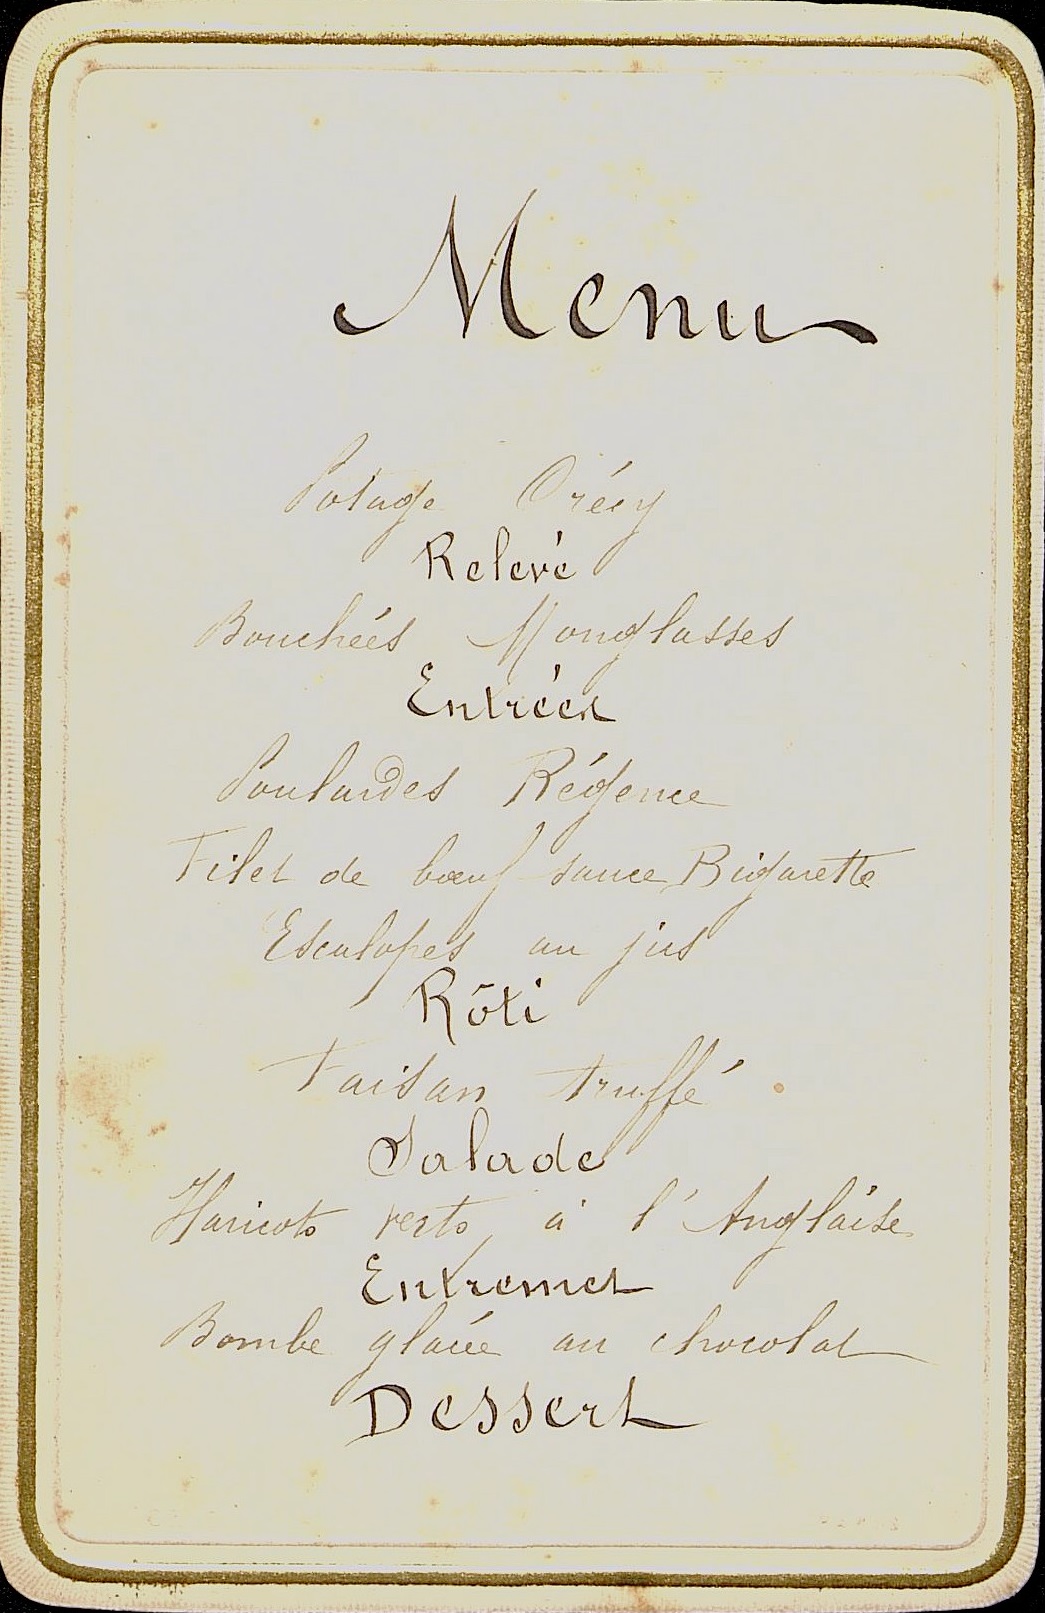 Menu
Potage Crécy
Relevé
Bouchées Monglasses
Entrées
Poulardes Régence
Filet de bœuf sauce Bigarette
Escalopes au jus
Rôti
Faisan truffé
Salade
Haricots verts à l'Anglaise
Entremet
Bombe glacée au chocolat
Dessert